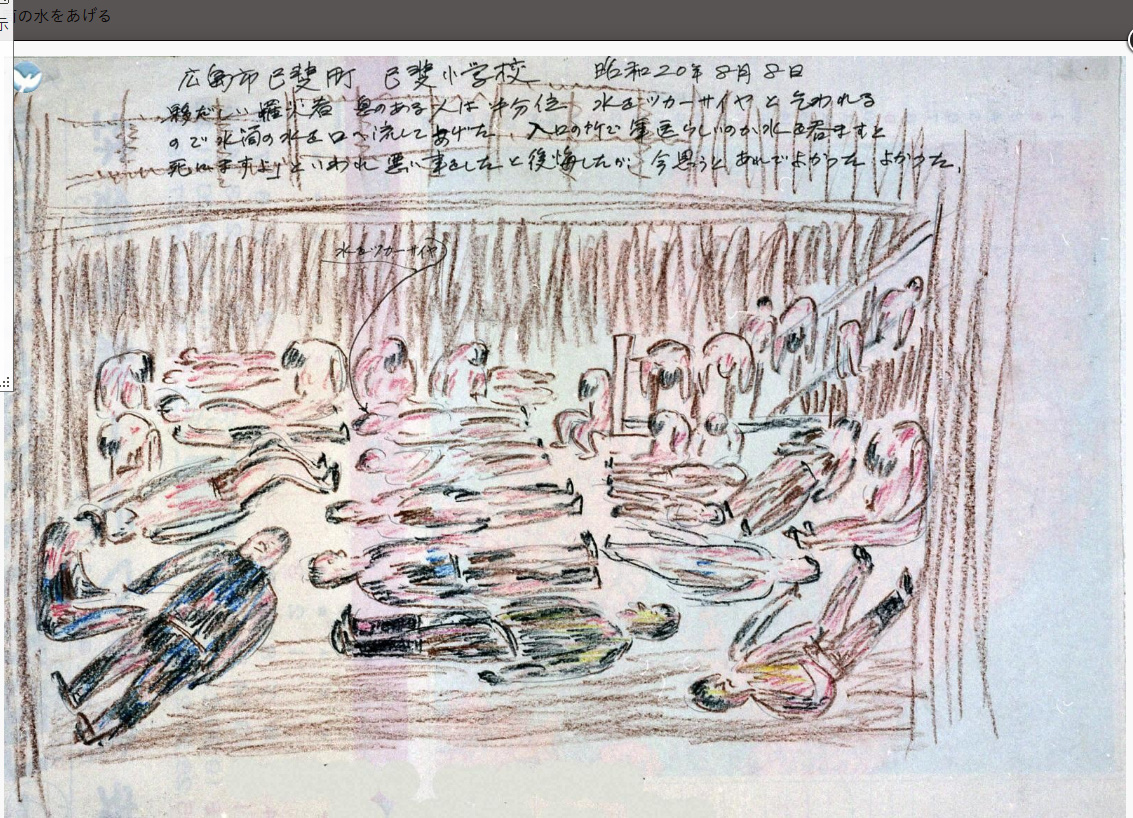 の水をあげる
示
広島市己斐町 己斐小学校 昭和20年8月8日
夥だしい罹災者 息のある人は半分位 水をツカーサイヤと云われる
ので水筒の水を口へ流してあげた 入口の所で軍医らしいのが水を呑ますと
死にますよ」といわれ悪い事をしたと後悔したが、今思うとあれでよかった よかった。
水をツカーサイヤ